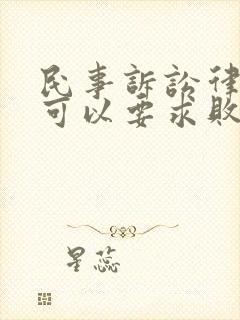 民事訴訟律
可以要求敗
星蕊